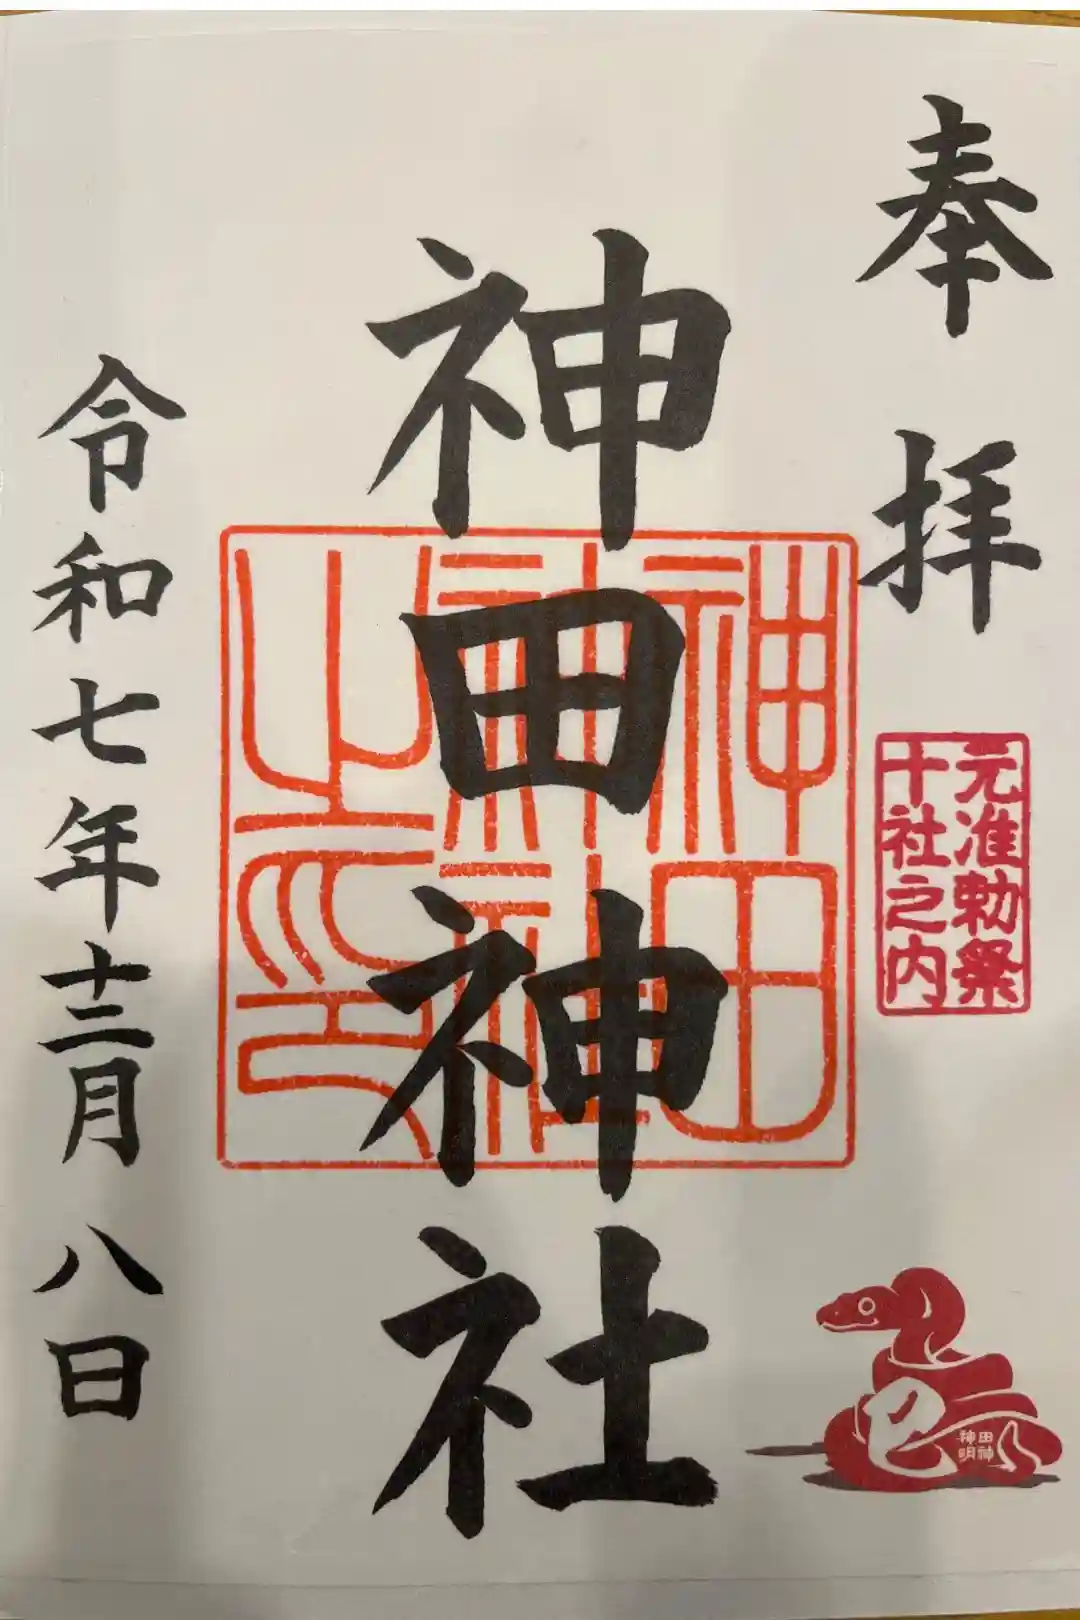 奉拝
元准勅祭
十社之内
巳
神田
明神
神田神社
神田
神社
之印
令和七年十二月八日